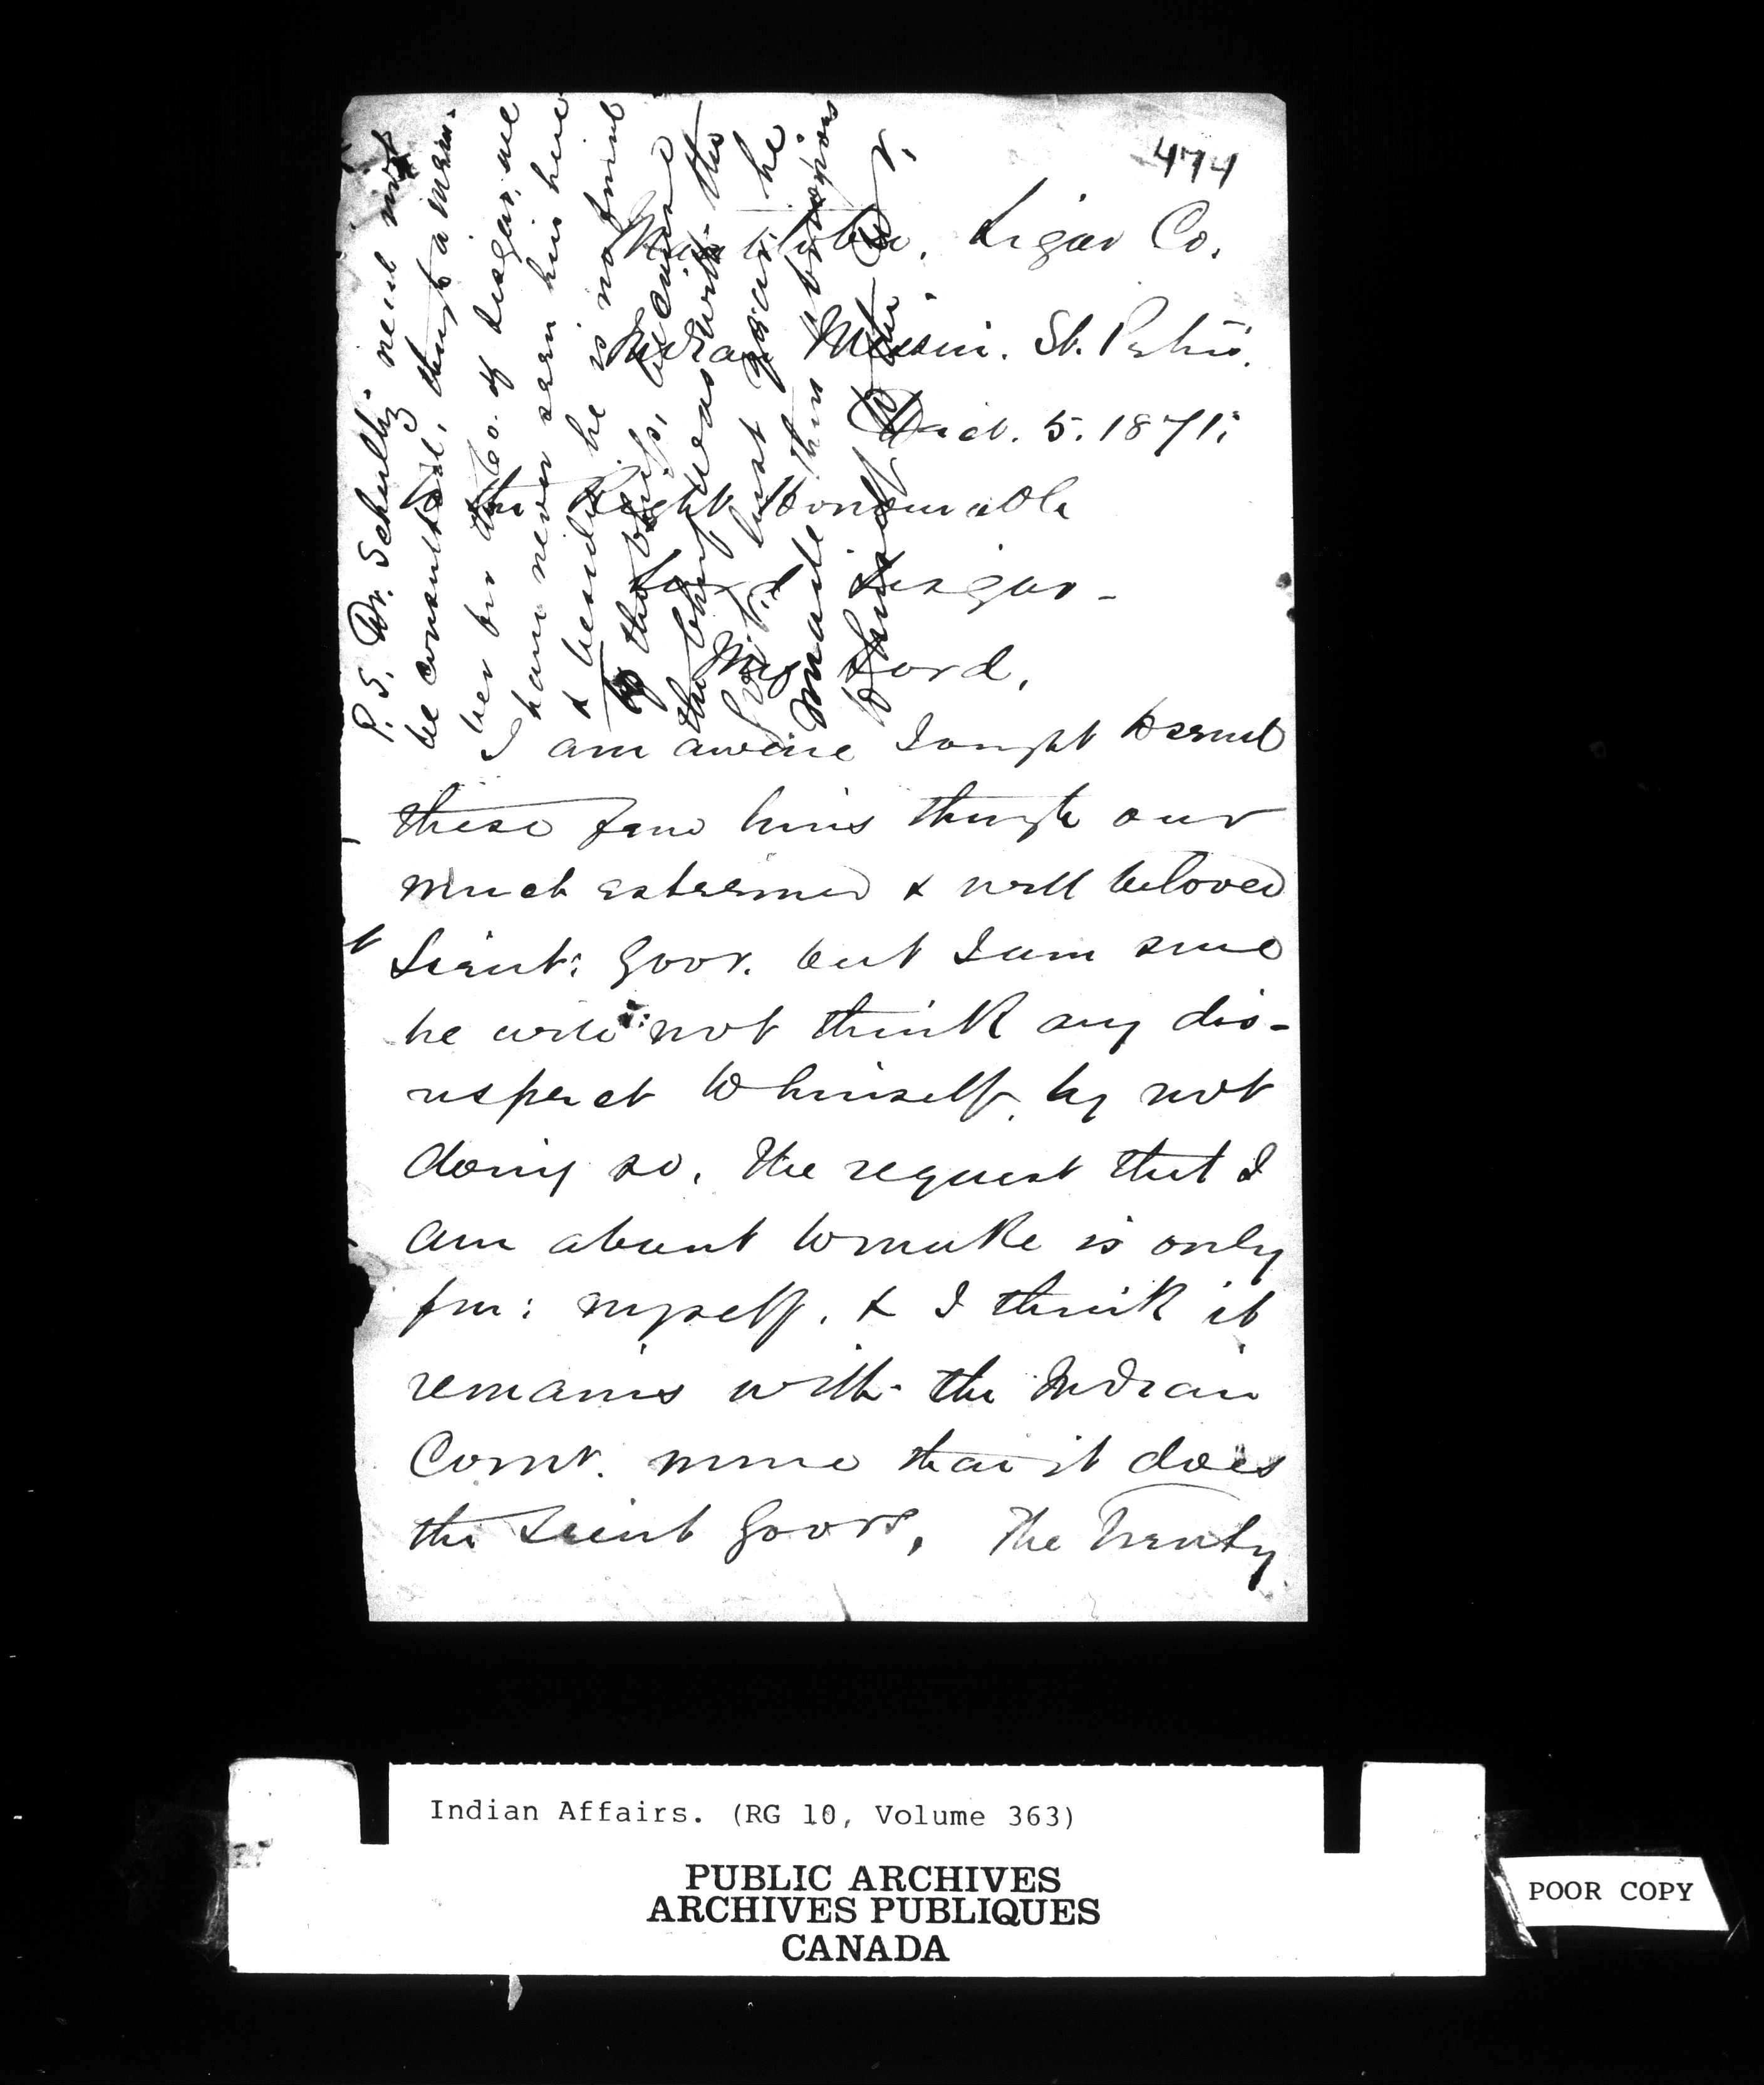 474
Manitoba. Lisgar Co.
Indian Mission. St. Peter's.
5. 1871.
To the Right Honourable
Lord Lisgar-
My Lord,
I am aware I ought to send
these few lines through our
much esteemed & well beloved
Lieut: Govr. but I am sure
he will not think any dis-
respect to himself, by not
doing so. The request that I
am about to make is only
for: myself. & I think it
remains with the Indian
Comr. more than it does
the Lieut Govors. The Treaty
P.S. Dr. Schultz need not
be consulted, though a mem-
ber for the Co. of Lisgar, we
have never seen him here
& besides he is no friend
of the
the Chief was with the
last year he
made him
to himself
Indian Affairs. (RG 10, Volume 363)
PUBLIC ARCHIVES
ARCHIVES PUBLIQUES
CANADA
POOR COPY